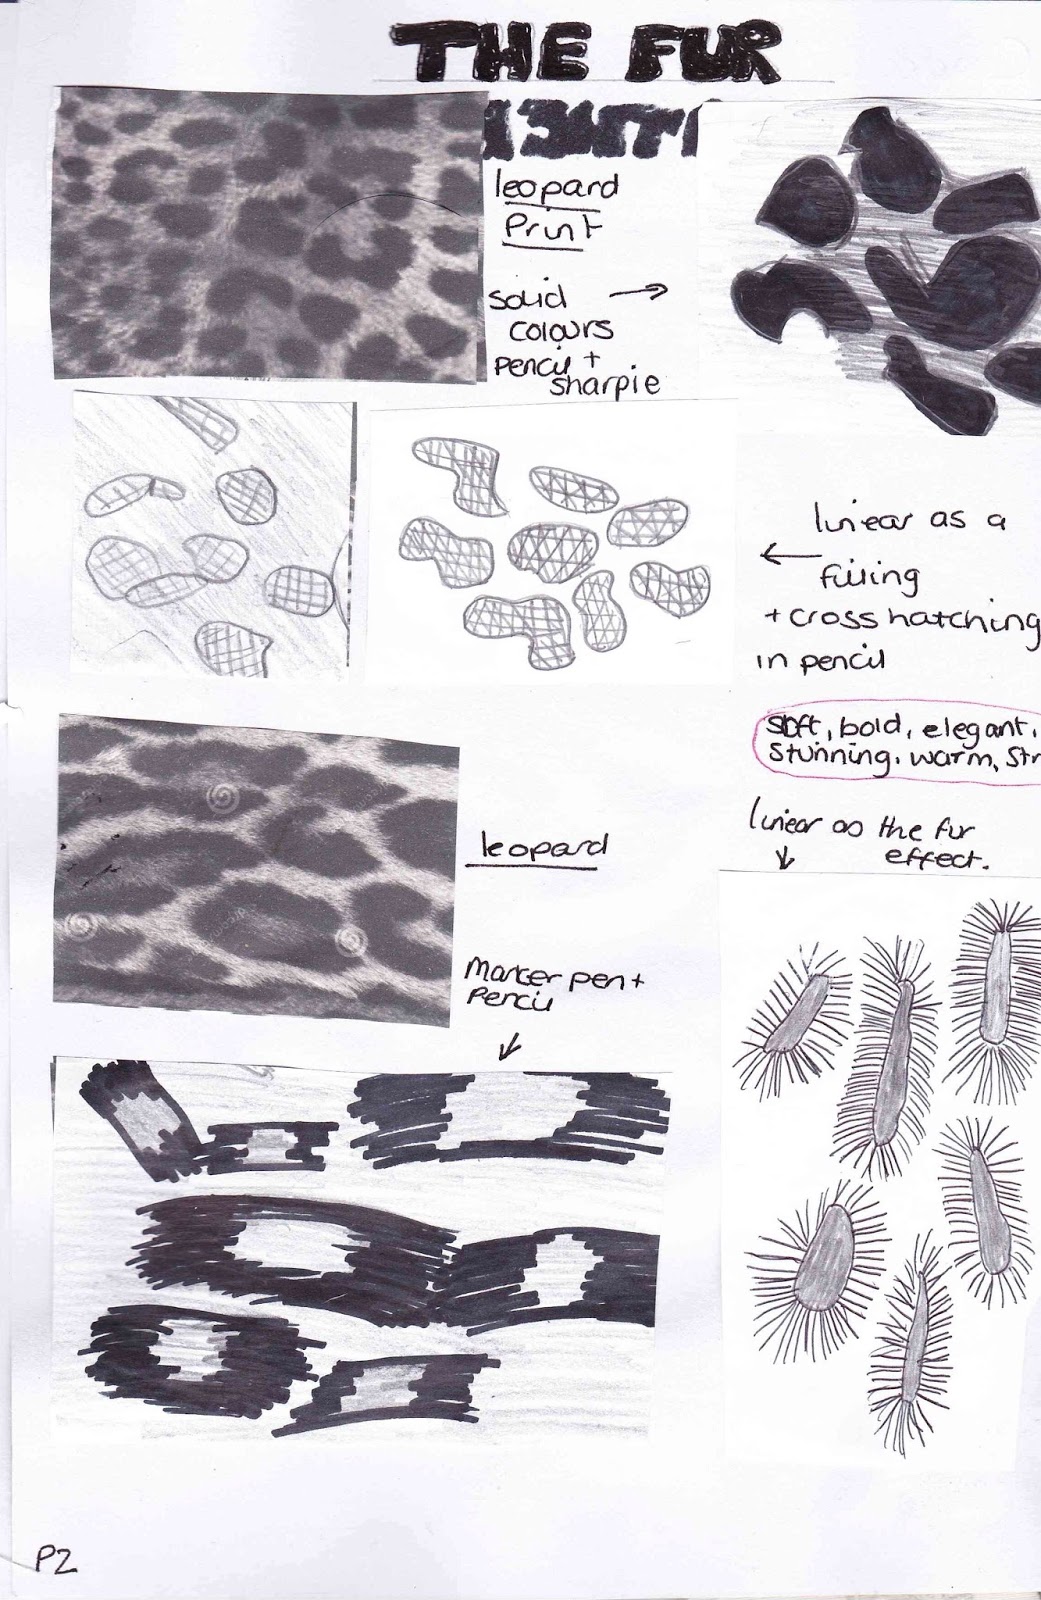 THE FUR
leopard
Print
solid
colours
pencil +
sharpie
linear as a
filling
+ cross hatching
in pencil
soft, bold, elegant,
stunning, warm, str
linear as the fur
effect.
leopard
Marker pen +
Pencil
P2